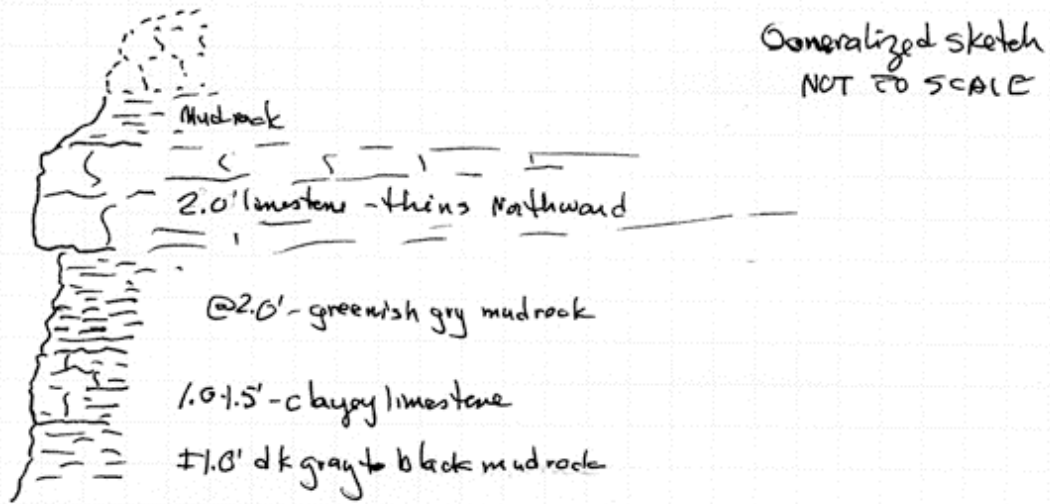 Generalized sketch
NOT TO SCALE
Mudrock
2.0' limestone - thins Northward
@2.0' - greenish gry mudrock
1.0-1.5' - clayey limestone
±1.0' dk gray to black mudrock